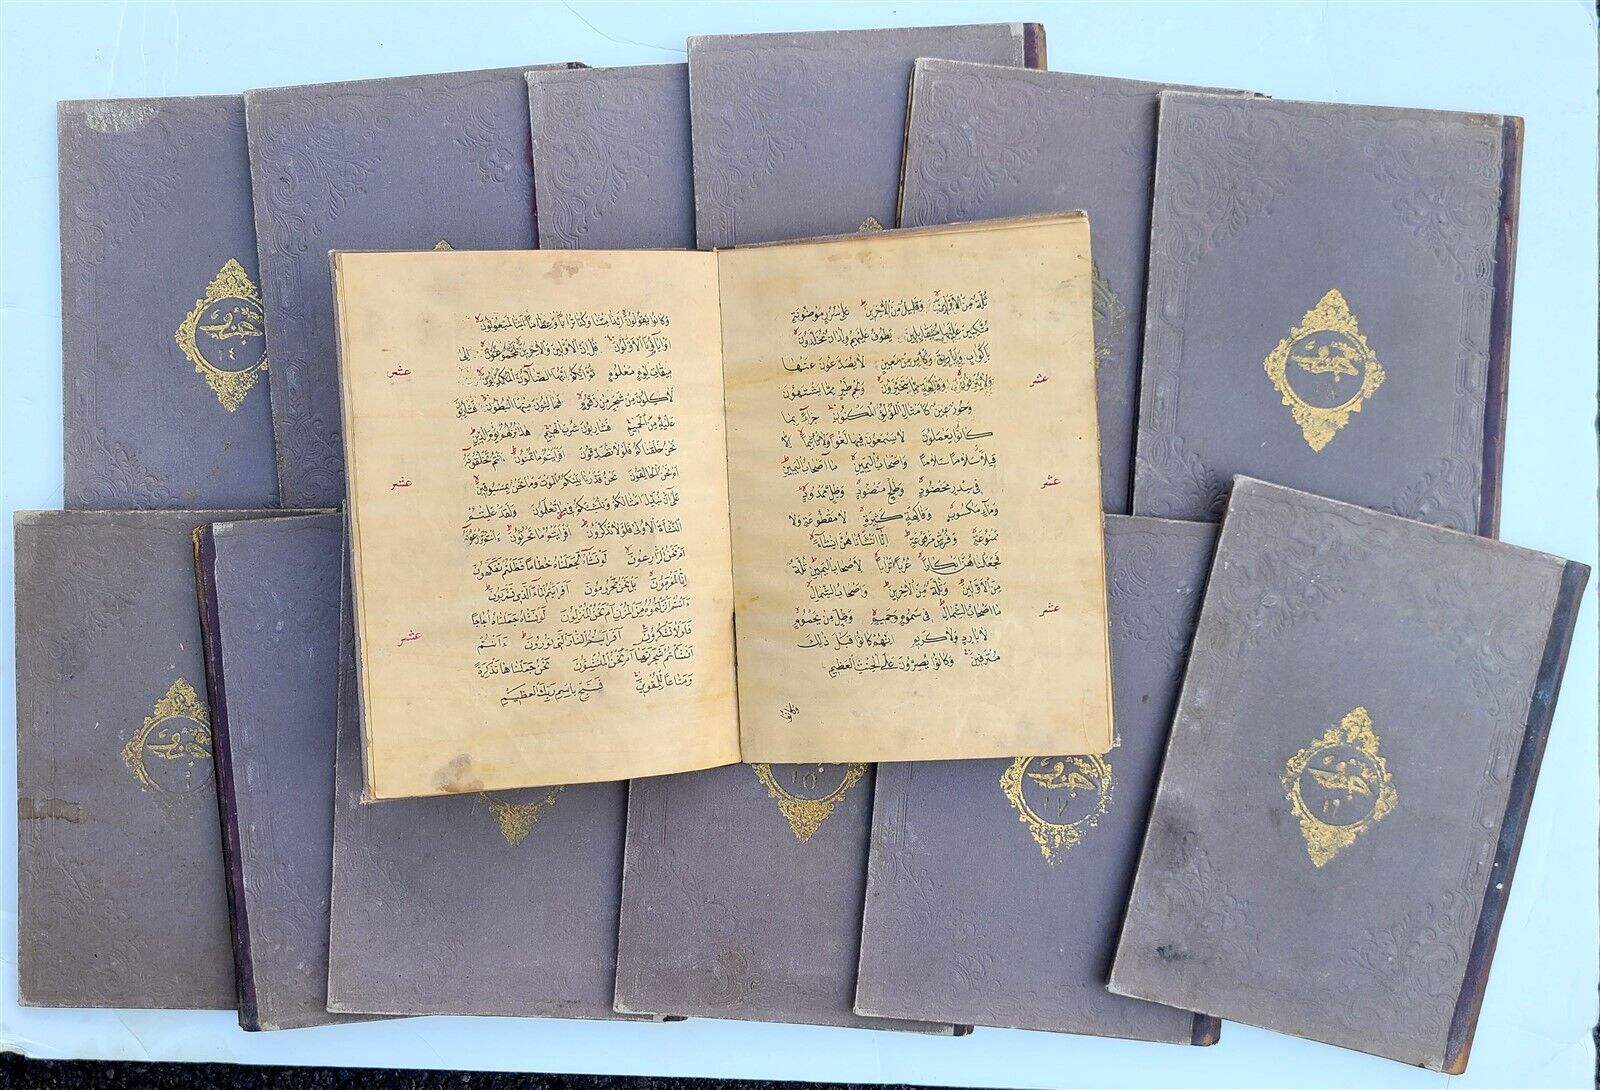 ثُلَّةٌ مِنَ الْأَوَّلِينَ وَقَلِيلٌ مِنَ الْآخِرِينَ عَلَى سُرُرٍ مَوْضُونَةٍ
مُتَّكِئِينَ عَلَيْهَا مُتَقَابِلِينَ يَطُوفُ عَلَيْهِمْ وِلْدَانٌ مُخَلَّدُونَ
بِأَكْوَابٍ وَأَبَارِيقَ وَكَأْسٍ مِنْ مَعِينٍ لَا يُصَدَّعُونَ عَنْهَا
وَلَا يُنْزِفُونَ وَفَاكِهَةٍ مِمَّا يَتَخَيَّرُونَ وَلَحْمِ طَيْرٍ مِمَّا يَشْتَهُونَ
عشر
وَحُورٌ عِينٌ كَأَمْثَالِ اللُّؤْلُؤِ الْمَكْنُونِ جَزَاءً بِمَا
كَانُوا يَعْمَلُونَ لَا يَسْمَعُونَ فِيهَا لَغْوًا وَلَا تَأْثِيمًا إِلَّا
قِيلًا سَلَامًا سَلَامًا وَأَصْحَابُ الْيَمِينِ مَا أَصْحَابُ الْيَمِينِ
فِي سِدْرٍ مَخْضُودٍ وَطَلْحٍ مَنْضُودٍ وَظِلٍّ مَمْدُودٍ
عشر
وَمَاءٍ مَسْكُوبٍ وَفَاكِهَةٍ كَثِيرَةٍ لَا مَقْطُوعَةٍ وَلَا
مَمْنُوعَةٍ وَفُرُشٍ مَرْفُوعَةٍ إِنَّا أَنْشَأْنَاهُنَّ إِنْشَاءً
فَجَعَلْنَاهُنَّ أَبْكَارًا عُرُبًا أَتْرَابًا لِأَصْحَابِ الْيَمِينِ ثُلَّةٌ
مِنَ الْأَوَّلِينَ وَثُلَّةٌ مِنَ الْآخِرِينَ وَأَصْحَابُ الشِّمَالِ
مَا أَصْحَابُ الشِّمَالِ فِي سَمُومٍ وَحَمِيمٍ وَظِلٍّ مِنْ يَحْمُومٍ
عشر
لَا بَارِدٍ وَلَا كَرِيمٍ إِنَّهُمْ كَانُوا قَبْلَ ذَلِكَ
مُتْرَفِينَ وَكَانُوا يُصِرُّونَ عَلَى الْحِنْثِ الْعَظِيمِ
وكانوا
وَكَانُوا يَقُولُونَ أَئِذَا مِتْنَا وَكُنَّا تُرَابًا وَعِظَامًا أَئِنَّا لَمَبْعُوثُونَ
أَوَآبَاؤُنَا الْأَوَّلُونَ قُلْ إِنَّ الْأَوَّلِينَ وَالْآخِرِينَ لَمَجْمُوعُونَ إِلَى
مِيقَاتِ يَوْمٍ مَعْلُومٍ ثُمَّ إِنَّكُمْ أَيُّهَا الضَّالُّونَ الْمُكَذِّبُونَ
عشر
لَآكِلُونَ مِنْ شَجَرٍ مِنْ زَقُّومٍ فَمَالِئُونَ مِنْهَا الْبُطُونَ فَشَارِبُونَ
عَلَيْهِ مِنَ الْحَمِيمِ فَشَارِبُونَ شُرْبَ الْهِيمِ هَذَا نُزُلُهُمْ يَوْمَ الدِّينِ
نَحْنُ خَلَقْنَاكُمْ فَلَوْلَا تُصَدِّقُونَ أَفَرَأَيْتُمْ مَا تُمْنُونَ ءَأَنْتُمْ تَخْلُقُونَهُ
أَمْ نَحْنُ الْخَالِقُونَ نَحْنُ قَدَّرْنَا بَيْنَكُمُ الْمَوْتَ وَمَا نَحْنُ بِمَسْبُوقِينَ
عشر
عَلَى أَنْ نُبَدِّلَ أَمْثَالَكُمْ وَنُنْشِئَكُمْ فِي مَا لَا تَعْلَمُونَ وَلَقَدْ عَلِمْتُمُ
النَّشْأَةَ الْأُولَى فَلَوْلَا تَذَكَّرُونَ أَفَرَأَيْتُمْ مَا تَحْرُثُونَ ءَأَنْتُمْ تَزْرَعُونَهُ
أَمْ نَحْنُ الزَّارِعُونَ لَوْ نَشَاءُ لَجَعَلْنَاهُ حُطَامًا فَظَلْتُمْ تَفَكَّهُونَ
إِنَّا لَمُغْرَمُونَ بَلْ نَحْنُ مَحْرُومُونَ أَفَرَأَيْتُمُ الْمَاءَ الَّذِي تَشْرَبُونَ
ءَأَنْتُمْ أَنْزَلْتُمُوهُ مِنَ الْمُزْنِ أَمْ نَحْنُ الْمُنْزِلُونَ لَوْ نَشَاءُ جَعَلْنَاهُ أُجَاجًا
فَلَوْلَا تَشْكُرُونَ أَفَرَأَيْتُمُ النَّارَ الَّتِي تُورُونَ ءَأَنْتُمْ
عشر
أَنْشَأْتُمْ شَجَرَتَهَا أَمْ نَحْنُ الْمُنْشِئُونَ نَحْنُ جَعَلْنَاهَا تَذْكِرَةً
وَمَتَاعًا لِلْمُقْوِينَ فَسَبِّحْ بِاسْمِ رَبِّكَ الْعَظِيمِ
جزؤ
١٤
جزؤ
٨
جزؤ
١٥
جزؤ
١٧
جزؤ
جزؤ